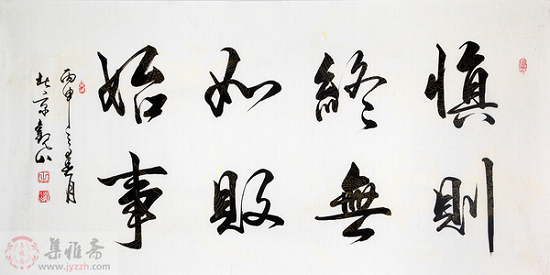 慎終如始
則無敗事
丙申之春月
北京觀山
集雅斋
www.jyzzh.com